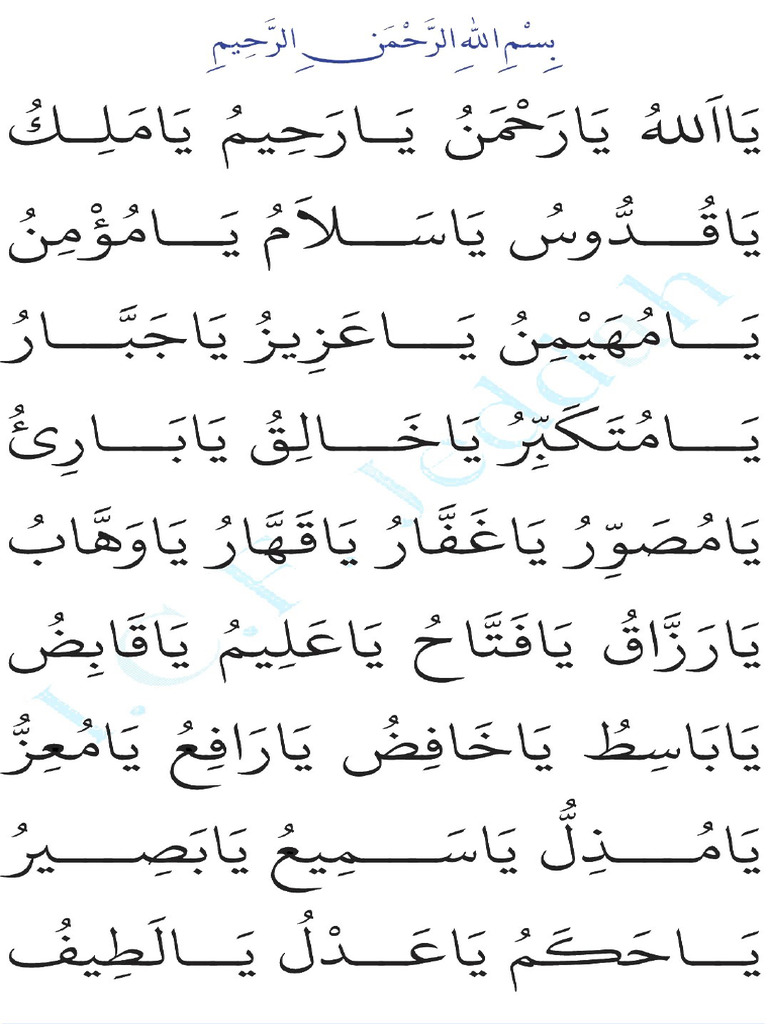 بِسْمِ اللهِ الرَّحْمَنِ الرَّحِيمِ
يَااَللهُ يَارَحْمَنُ يَارَحِيمُ يَامَلِكُ
يَاقُدُّوسُ يَاسَلاَمُ يَامُؤْمِنُ
يَامُهَيْمِنُ يَاعَزِيزُ يَاجَبَّارُ
يَامُتَكَبِّرُ يَاخَالِقُ يَابَارِئُ
يَامُصَوِّرُ يَاغَفَّارُ يَاقَهَّارُ يَاوَهَّابُ
يَارَزَّاقُ يَافَتَّاحُ يَاعَلِيمُ يَاقَابِضُ
يَابَاسِطُ يَاخَافِضُ يَارَافِعُ يَامُعِزُّ
يَامُذِلُّ يَاسَمِيعُ يَابَصِيرُ
يَاحَكَمُ يَاعَدْلُ يَالَطِيفُ
I.C.F. Jeddah